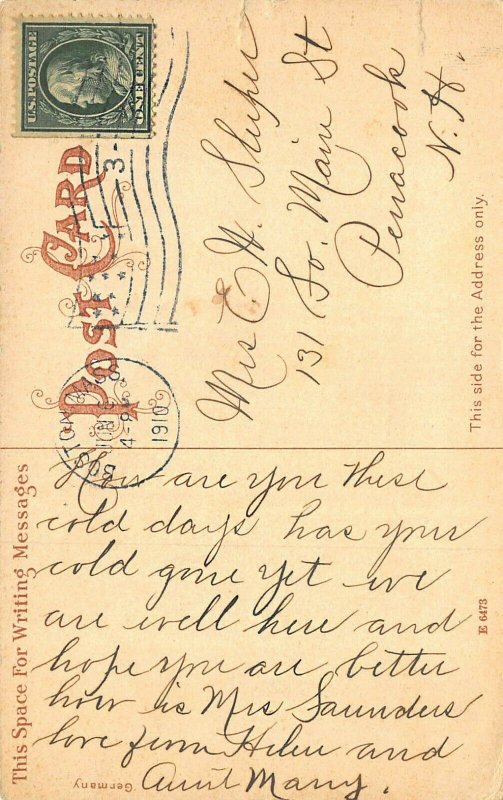 U.S. POSTAGE
ONE CENT
POST CARD
BOSTON, MASS.
4-
1910
3
Mrs C. H. Sleeper
131 So. Main St
Penacook
N. H.
This side for the Address only.
This Space For Writing Messages
How are you these
cold days has your
cold gone yet we
are well here and
hope you are better
how is Mrs Saunders
love from Helen and
Aunt Mary.
Germany
E 6473